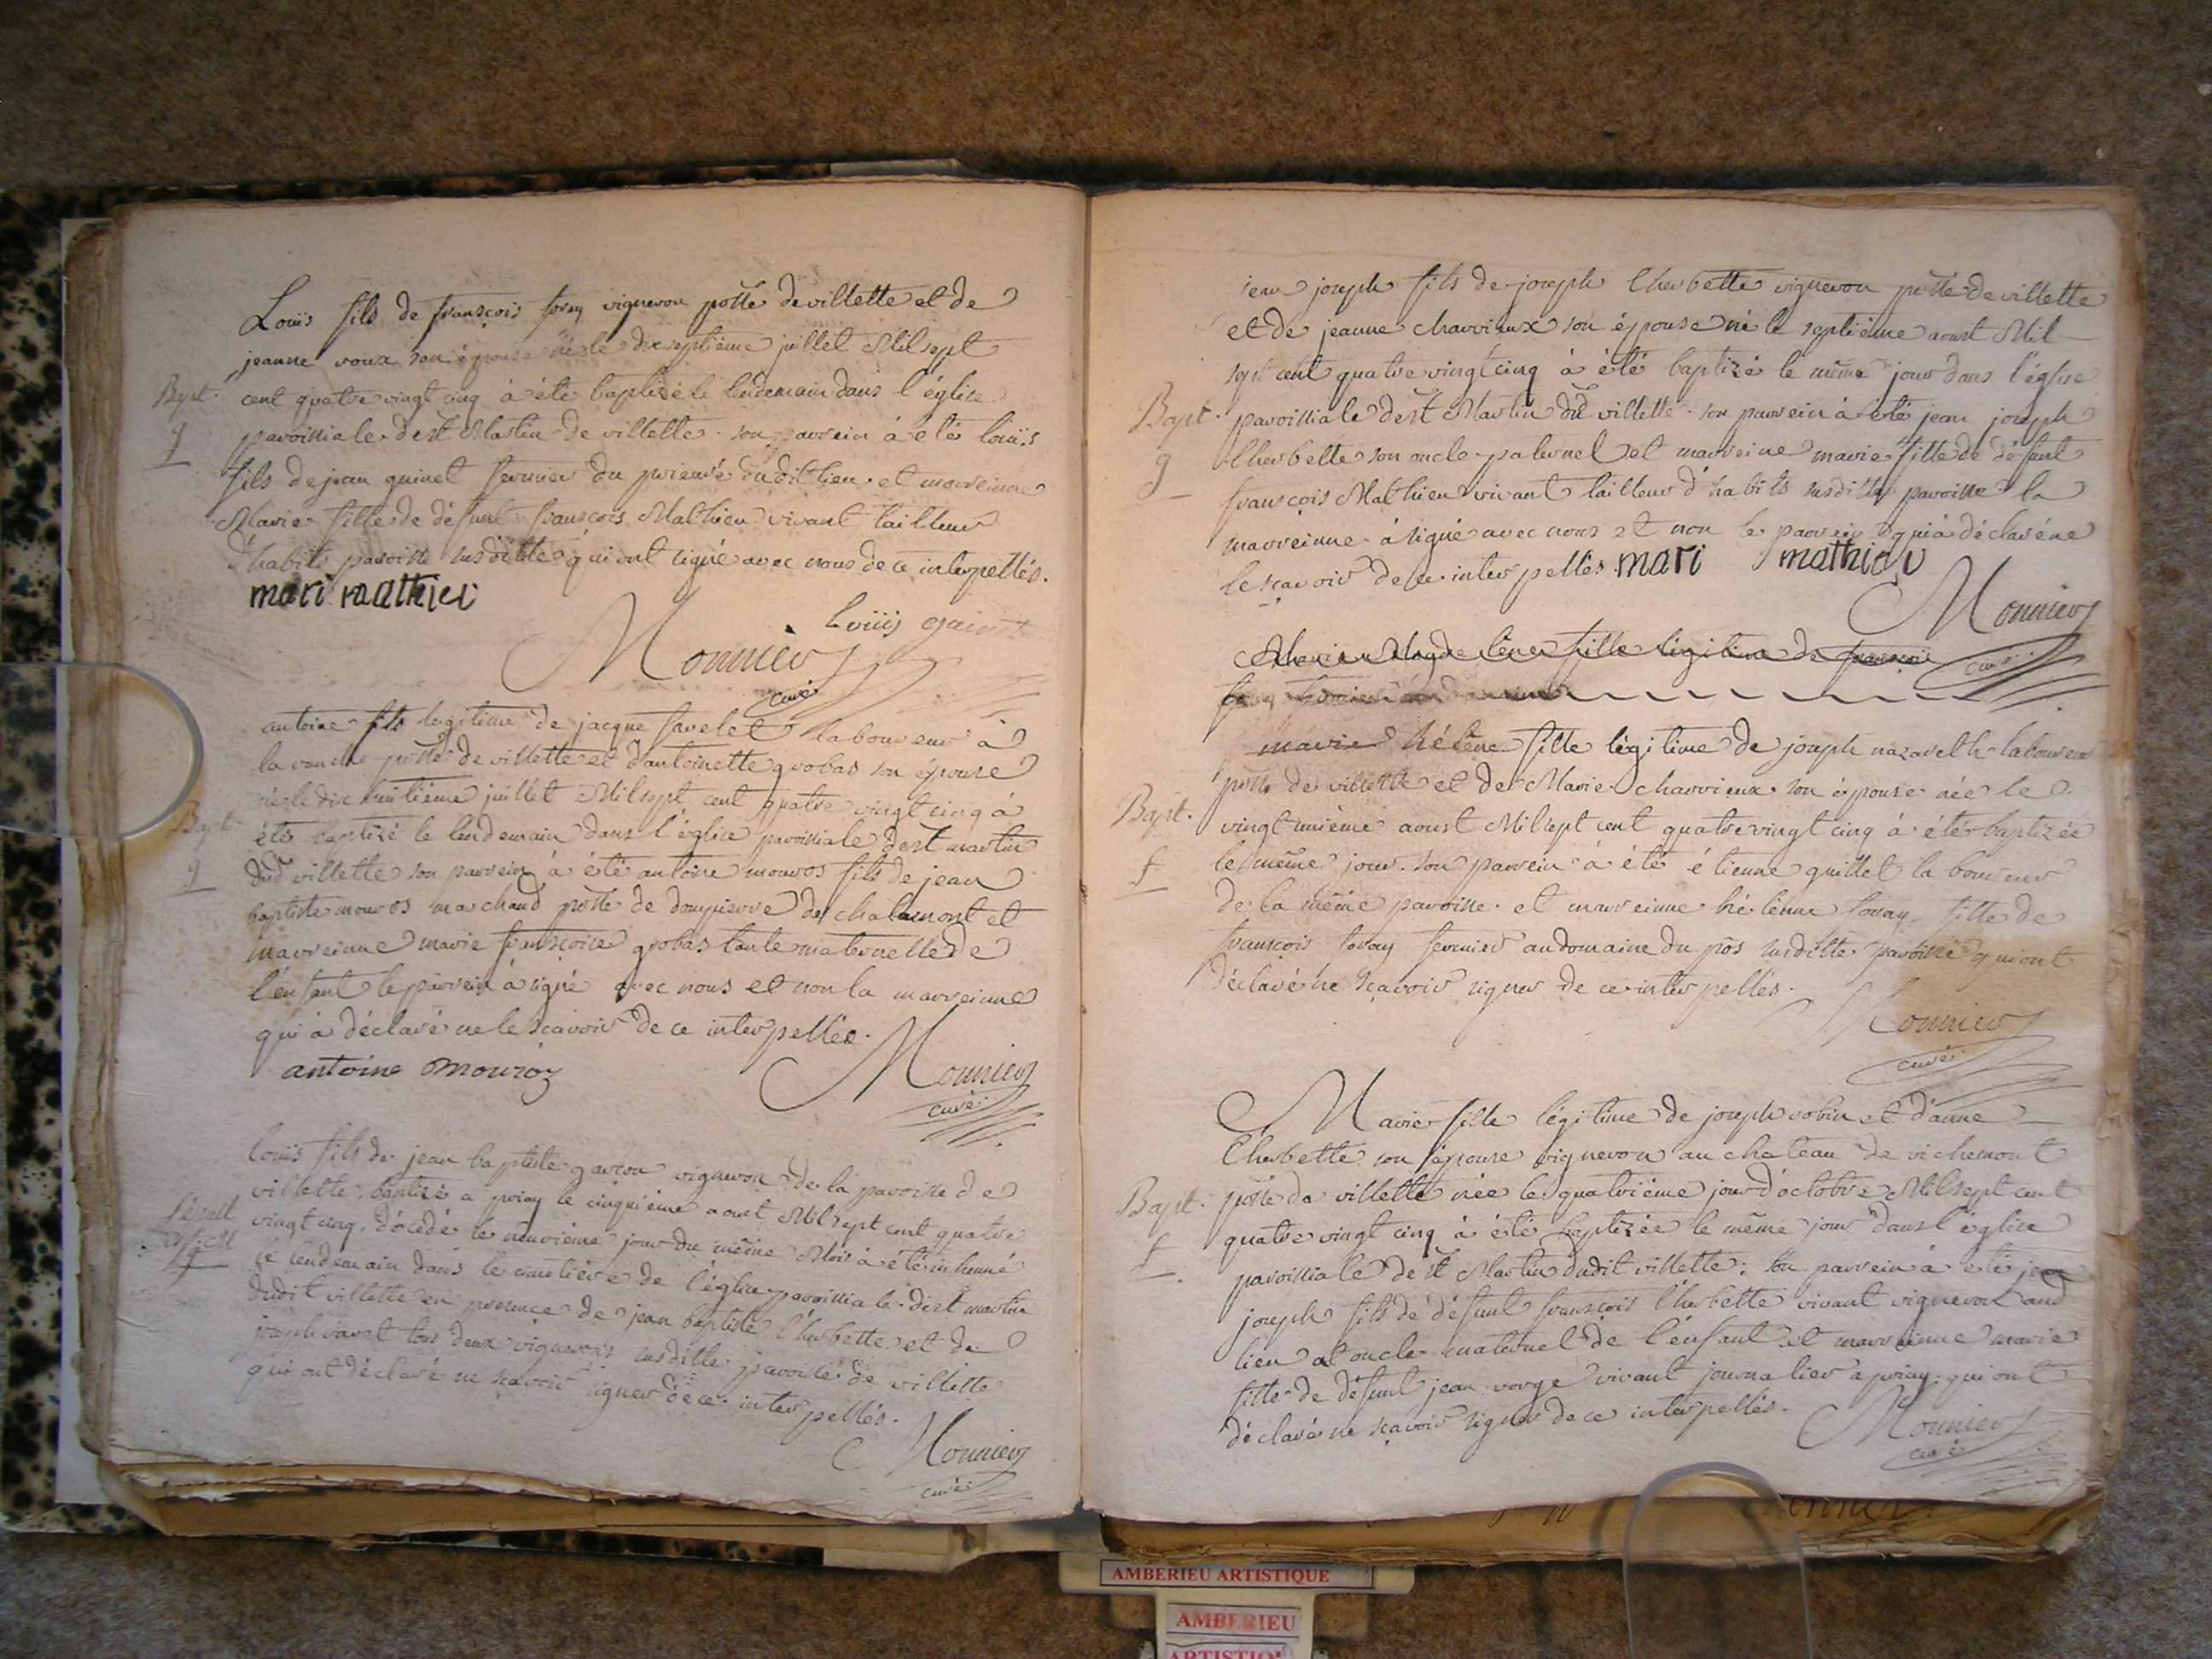 Louis fils de françois foray vigneron poîsse de villette et de
jeanne roux son épouse né le dixseptième juillet Milsept
Bapt. cent quatre vingt cinq à été baptizé le lendemain dans l'église
g paroissiale de st Martin de villette. son parrein à eté loüis
fils de jean quinet fermier du prieuré dudit lieu. et marreinne
Marie fille de défunt françois Mathieu vivant tailleur
d'habits paroisse susditte qui ont signé avec nous de ce interpellés.
mari mathieu
Loüis quinet
Monnier
curé
antoine fils legitime de jacque favelet laboureur à
la poîsse de villette et d'antoinette grobas son épouse
né le dix huitième juillet Milsept cent quatre vingt cinq à
Bapt. été baptizé le lendemain dans l'église paroissiale de st martin
g dud villette son parrein à été antoine mouros fils de jean
baptiste mouros marchand poîsse de dompierre de chalamont et
marreinne marie françoise grobas tante maternelle de
l'enfant le parrein à signé avec nous et non la marreinne
qui à déclaré ne le sçavoir de ce interpellée.
antoine mouroz
Monnier
curé
loüis fils de jean baptiste garçon vigneron de la paroisse de
villette baptizé a priay le cinquième aoust Milsept cent quatre
vingt cinq, décédé le neuvième jour du même Mois à été inhumé
g le lendemain dans le cimetière de l'église paroissiale de st martin
dudit villette en presence de jean baptiste l'herbette et de
joseph tous deux vignerons susditte paroisse de villette
qui ont déclaré ne sçavoir signer de ce interpellés.
Monnier
curé
jean joseph fils de joseph lherbette vigneron poîsse de villette
et de jeanne charvieux son épouse né le septième aoust Mil
sept cent quatre vingt cinq à été baptizé le même jour dans l'église
Bapt. paroissiale de st Martin dud villette. son parrein à été jean joseph
g lherbette son oncle paternel et marreine marie fille de défunt
françois Mathieu vivant tailleur d'habits susditte paroisse la
marreinne à signé avec nous et non le parrein qui à déclaré ne
le sçavoir de ce interpellés. mari mathieu
Monnier
curé
Marie Magdeleine fille légitime de françois
foray fermier
marie hélène fille légitime de joseph nazareth laboureur
poîsse de villette et de Marie charvieux son épouse née le
Bapt. vingt unième aoust Milsept cent quatre vingt cinq à été baptizée
f le même jour. son parrein à été étienne guillet laboureur
de la même paroisse. et marreinne hélenne foray fille de
françois foray fermier au domaine du pos susditte paroisse qui ont
déclaré ne sçavoir signer de ce interpellés.
Monnier
curé
Marie fille légitime de joseph robin et d'anne
l'herbette son épouse vigneron au chateau de richemont
Bapt. poîsse de villette née le quatrième jour d'octobre Milsept cent
f quatre vingt cinq à été baptizée le même jour dans l'église
paroissiale de st Martin dudit villette; son parrein à été jean
joseph fils de défunt françois l'herbette vivant vigneron aud
lieu et oncle maternel de l'enfant et marreinne marie
fille de défunt jean vivant journalier a priay. qui ont
déclaré ne sçavoir signer de ce interpellés.
Monnier
curé
AMBERIEU ARTISTIQUE
AMBERIEU
ARTISTIQUE